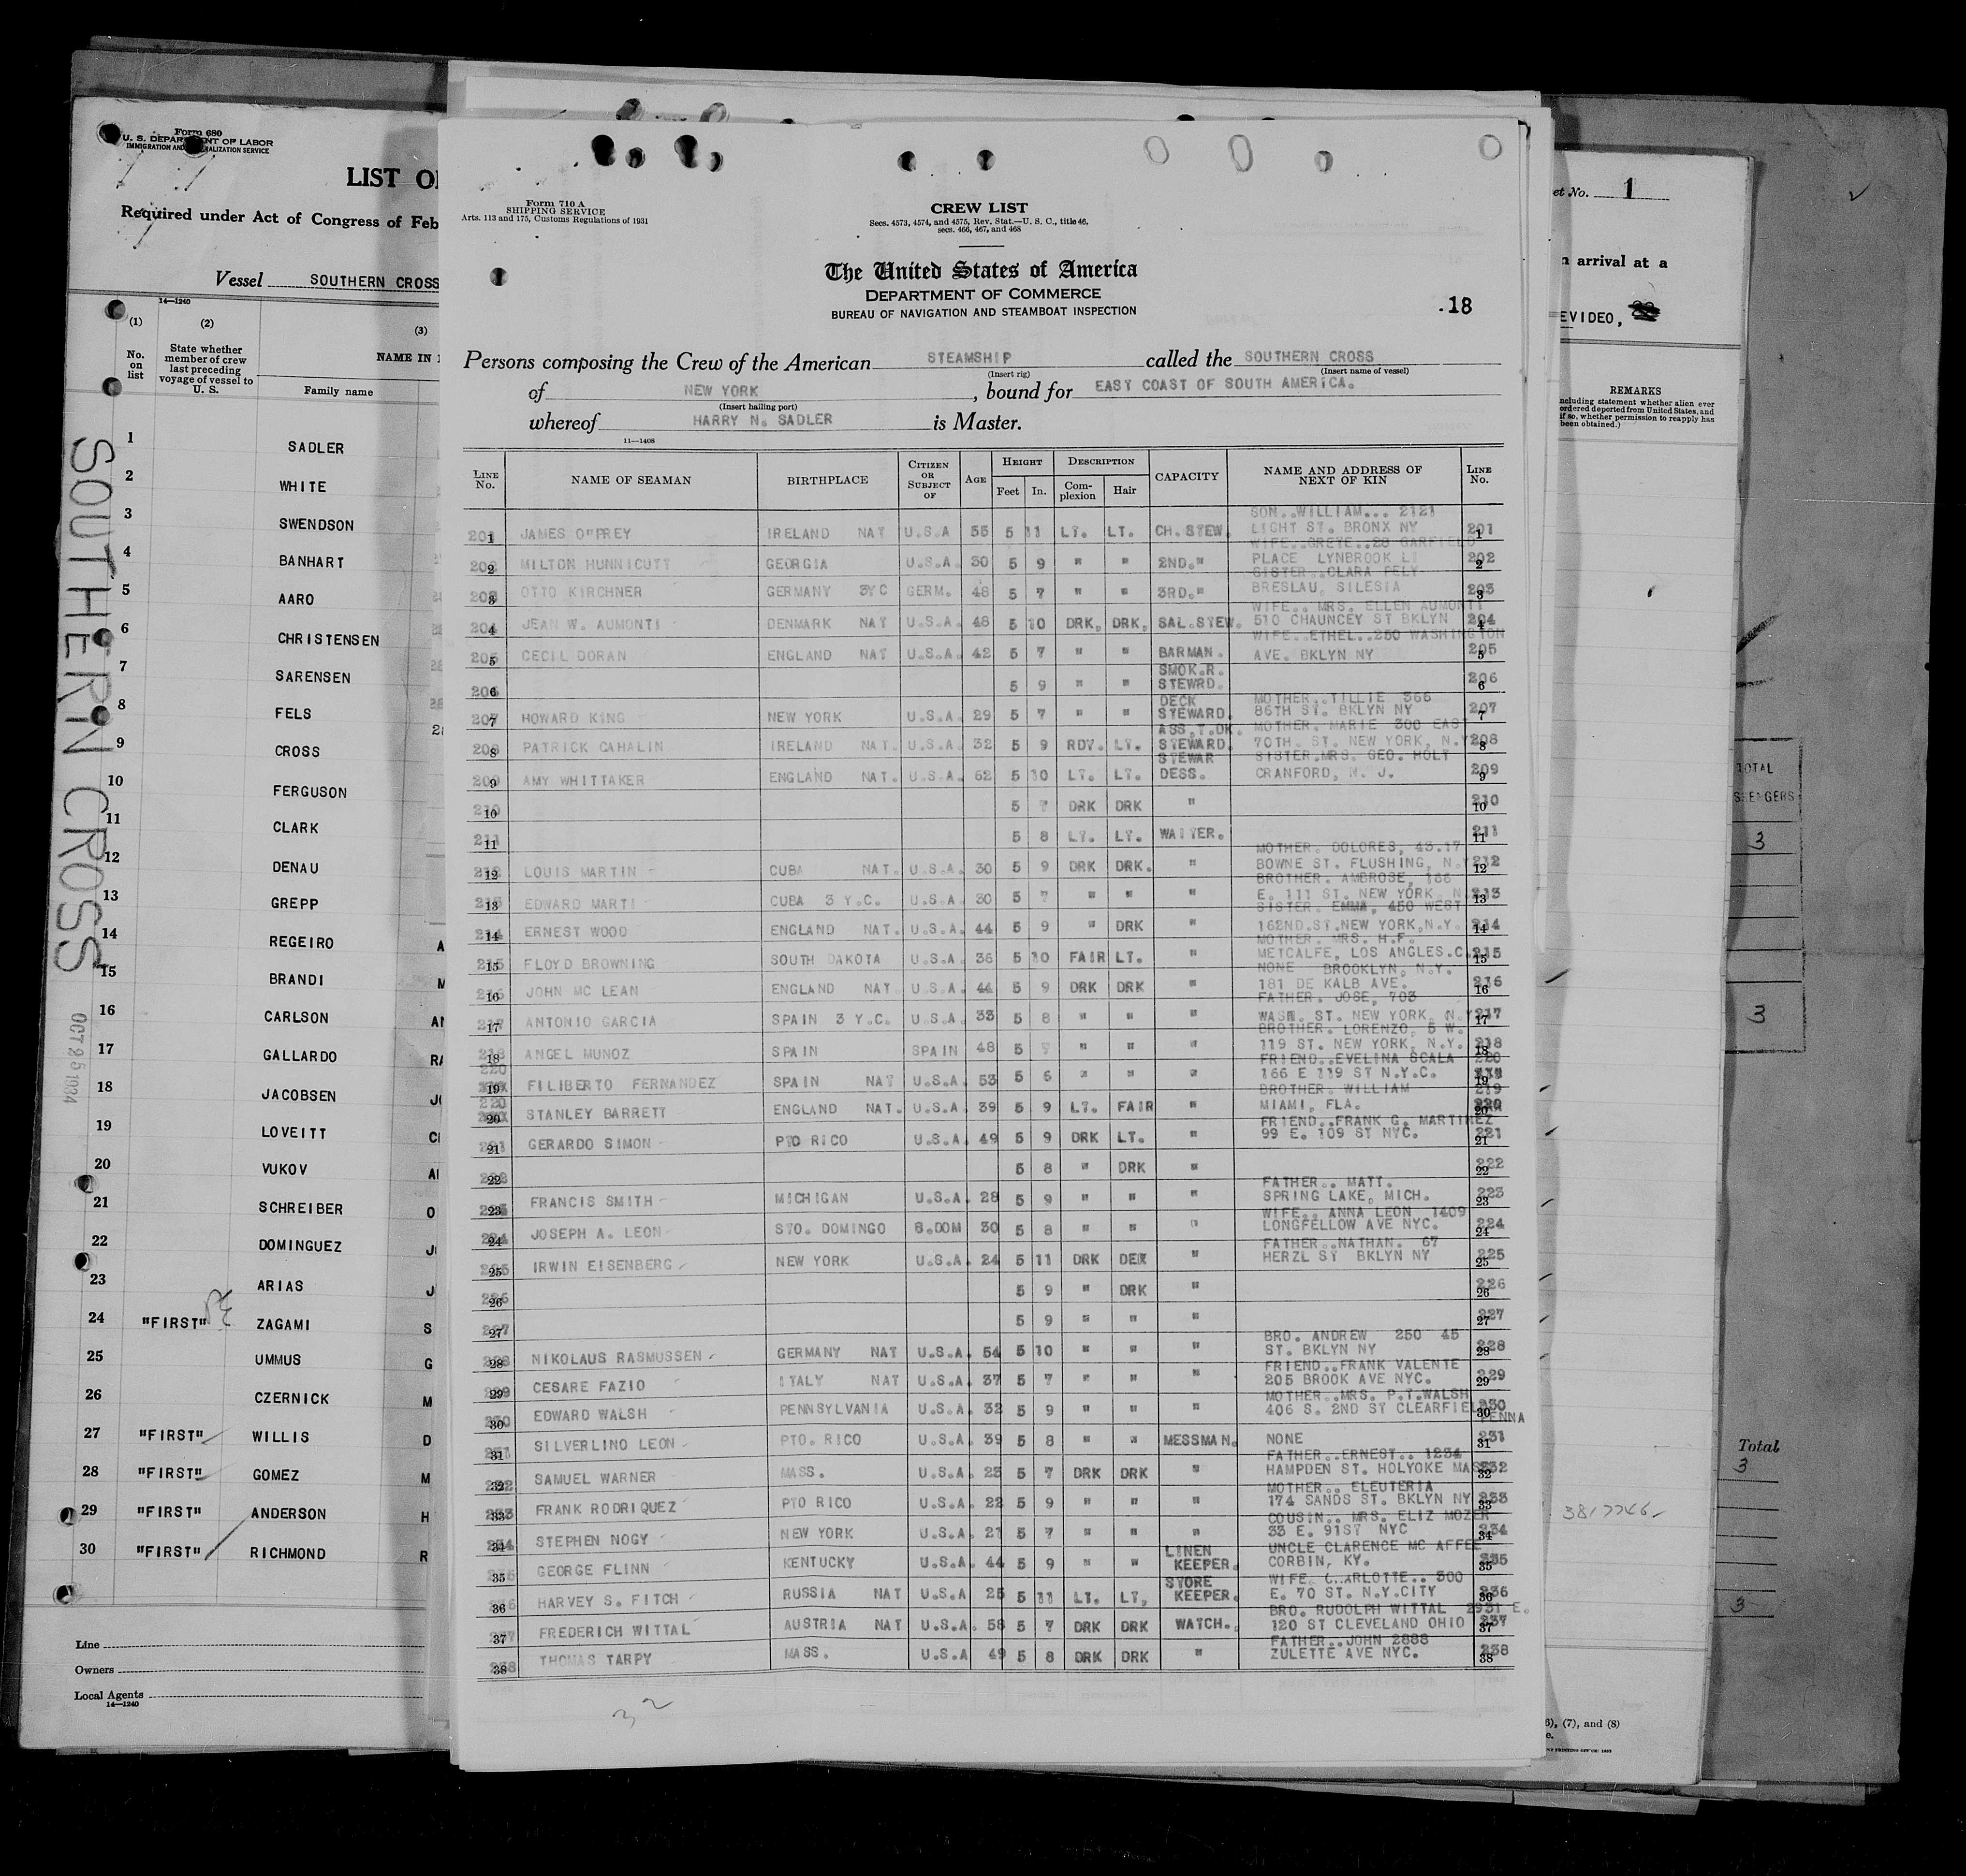 Form 680
U. S. DEPARTMENT OF LABOR
IMMIGRATION AND NATURALIZATION SERVICE
LIST OF
Required under Act of Congress of Feb
Vessel SOUTHERN CROSS
14—1240
(1) (2) (3)
No. on list
State whether member of crew last preceding voyage of vessel to U. S.
NAME IN
Family name
1 SADLER
2 WHITE
3 SWENDSON
4 BANHART
5 AARO
6 CHRISTENSEN
7 SARENSEN
8 FELS
9 CROSS
10 FERGUSON
11 CLARK
12 DENAU
13 GREPP
14 REGEIRO A
15 BRANDI M
16 CARLSON AN
17 GALLARDO RA
18 JACOBSEN JO
19 LOVEITT
20 VUKOV
21 SCHREIBER O
22 DOMINGUEZ J
23 ARIAS J
24 "FIRST" ZAGAMI S
25 UMMUS G
26 CZERNICK M
27 "FIRST" WILLIS D
28 "FIRST" GOMEZ M
29 "FIRST" ANDERSON H
30 "FIRST" RICHMOND R
Line
Owners
Local Agents
14—1240
SOUTHERN CROSS
OCT 25 1934
Form 710 A
SHIPPING SERVICE
Arts. 113 and 175, Customs Regulations of 1931
CREW LIST
Secs. 4573, 4574, and 4575, Rev. Stat.—U. S. C., title 46,
secs. 466, 467, and 468
The United States of America
DEPARTMENT OF COMMERCE
BUREAU OF NAVIGATION AND STEAMBOAT INSPECTION
.18
Persons composing the Crew of the American STEAMSHIP called the SOUTHERN CROSS
(Insert rig) (Insert name of vessel)
of NEW YORK, bound for EAST COAST OF SOUTH AMERICA.
(Insert hailing port)
whereof HARRY N. SADLER is Master.
11—1408
LINE No. NAME OF SEAMAN BIRTHPLACE CITIZEN OR SUBJECT OF AGE HEIGHT Feet In. DESCRIPTION Complexion Hair CAPACITY NAME AND ADDRESS OF NEXT OF KIN LINE No.
SON..WILLIAM... 2121
201 1 JAMES O"PREY IRELAND NAT U.S.A 55 5 11 LT. LT. CH.STEW. LIGHT ST. BRONX NY 201 1
WIFE..GRETE..20 GARFIELD
202 2 MILTON HUNNICUTT GEORGIA U.S.A. 30 5 9 " " 2ND." PLACE LYNBROOK LI 202 2
SISTER..CLARA PELY
203 3 OTTO KIRCHNER GERMANY 3YC GERM. 48 5 7 " " 3RD." BRESLAU, SILESIA 203 3
WIFE.. MRS. ELLEN AUMONTI
204 4 JEAN W. AUMONTI DENMARK NAT U.S.A. 48 5 10 DRK. DRK. SAL.STEW. 510 CHAUNCEY ST BKLYN 204 4
WIFE..ETHEL..250 WASHINGTON
205 5 CECIL DORAN ENGLAND NAT U.S.A. 42 5 7 " " BARMAN. AVE. BKLYN NY 205 5
206 6 5 9 " " SMOK.R. STEWRD. 206 6
MOTHER..TILLIE 366
207 7 HOWARD KING NEW YORK U.S.A. 29 5 7 " " DECK STEWARD. 86TH ST. BKLYN NY 207 7
MOTHER. MARIE 300 EAST
208 8 PATRICK CAHALIN IRELAND NAT. U.S.A. 32 5 9 RDY. LT. ASS.T.DK. STEWARD. 70TH. ST. NEW YORK, N.Y. 208 8
SISTER.MRS. GEO. HOLT
209 9 AMY WHITTAKER ENGLAND NAT. U.S.A. 62 5 10 LT. LT. STEWAR DESS. CRANFORD, N. J. 209 9
210 10 5 7 DRK DRK " 210 10
211 11 5 8 LT. LT. WAITER. 211 11
MOTHER. DOLORES, 43.17
212 12 LOUIS MARTIN CUBA NAT. U.S.A. 30 5 9 DRK DRK. " BOWNE ST. FLUSHING, N.Y 212 12
BROTHER. AMBROSE, 166
213 13 EDWARD MARTI CUBA 3 Y.C. U.S.A. 30 5 7 " " " E. 111 ST. NEW YORK, N. 213 13
SISTER. EMMA, 450 WEST
214 14 ERNEST WOOD ENGLAND NAT. U.S.A. 44 5 9 " DRK " 162ND.ST.NEW YORK,N.Y. 214 14
MOTHER. MRS. H.F.
215 15 FLOYD BROWNING SOUTH DAKOTA U.S.A. 36 5 10 FAIR LT. " METCALFE, LOS ANGLES.C. 215 15
NONE BROOKLYN, N.Y.
216 16 JOHN MC LEAN ENGLAND NAT U.S.A. 44 5 9 DRK DRK " 181 DE KALB AVE. 216 16
FATHER. JOSE, 703
217 17 ANTONIO GARCIA SPAIN 3 Y.C. U.S.A. 33 5 8 " " " WASH. ST. NEW YORK, N.Y 217 17
BROTHER. LORENZO, 5 W.
218 18 ANGEL MUNOZ SPAIN SPAIN 48 5 " " " 119 ST. NEW YORK, N.Y. 218 18
FRIEND..EVELINA SCALA 220
220 19 FILIBERTO FERNANDEZ SPAIN NAT U.S.A. 53 5 6 " " " 166 E 119 ST N.Y.C. 19
BROTHER. WILLIAM 219
220 20 STANLEY BARRETT ENGLAND NAT. U.S.A. 39 5 9 LT. FAIR " MIAMI, FLA. 220 20
FRIEND..FRANK G. MARTINEZ
221 21 GERARDO SIMON PTO RICO U.S.A. 49 5 9 DRK LT. " 99 E. 109 ST NYC. 221 21
222 22 5 8 " DRK " 222 22
FATHER.. MATT.
223 23 FRANCIS SMITH MICHIGAN U.S.A. 28 5 9 " " " SPRING LAKE, MICH. 223 23
WIFE.. ANNA LEON 1409
224 24 JOSEPH A. LEON STO. DOMINGO S.DOM 30 5 8 " " " LONGFELLOW AVE NYC. 224 24
FATHER..NATHAN. 67
225 25 IRWIN EISENBERG NEW YORK U.S.A. 24 5 11 DRK " HERZL ST BKLYN NY 225 25
226 26 5 9 " DRK " 226 26
227 27 5 9 " " " 227 27
BRO. ANDREW 250 45
228 28 NIKOLAUS RASMUSSEN GERMANY NAT U.S.A. 54 5 10 " " " ST. BKLYN NY 228 28
FRIEND..FRANK VALENTE
229 29 CESARE FAZIO ITALY NAT U.S.A. 37 5 7 " " " 205 BROOK AVE NYC. 229 29
MOTHER..MRS. P.T.WALSH
230 30 EDWARD WALSH PENNSYLVANIA U.S.A. 32 5 9 " " " 406 S. 2ND ST CLEARFIELD 230 30
PENNA
231 31 SILVERLINO LEON PTO. RICO U.S.A. 39 5 8 " " MESSMAN. NONE 231 31
FATHER..ERNEST.. 1234
232 32 SAMUEL WARNER MASS. U.S.A. 23 5 7 DRK DRK " HAMPDEN ST. HOLYOKE MASS 232 32
MOTHER.. ELEUTERIA
233 33 FRANK RODRIQUEZ PTO RICO U.S.A. 22 5 9 " " " 174 SANDS ST. BKLYN NY 233 33
COUSIN.. MRS. ELIZ MOZER
234 34 STEPHEN NOGY NEW YORK U.S.A. 21 5 7 " " " 33 E. 91ST NYC 234 34
UNCLE CLARENCE MC AFFEE
235 35 GEORGE FLINN KENTUCKY U.S.A. 44 5 9 " " LINEN KEEPER. CORBIN, KY. 235 35
WIFE. CHARLOTTE.. 300
236 36 HARVEY S. FITCH RUSSIA NAT U.S.A 25 5 11 LT. LT. STORE KEEPER. E. 70 ST. N.Y.CITY 236 36
BRO. RUDOLPH WITTAL 2931 E.
237 37 FREDERICH WITTAL AUSTRIA NAT U.S.A. 58 5 7 DRK DRK WATCH. 120 ST CLEVELAND OHIO 237 37
FATHER..JOHN 2888
238 38 THOMAS TARPY MASS. U.S.A 49 5 8 DRK DRK " ZULETTE AVE NYC. 238 38
32
et No. 1
n arrival at a
EVIDEO,
REMARKS
(Including statement whether alien ever
ordered deported from United States, and
if so, whether permission to reapply has
been obtained.)
TOTAL
3
3
Total
3
3817746
3
6), (7), and (8)